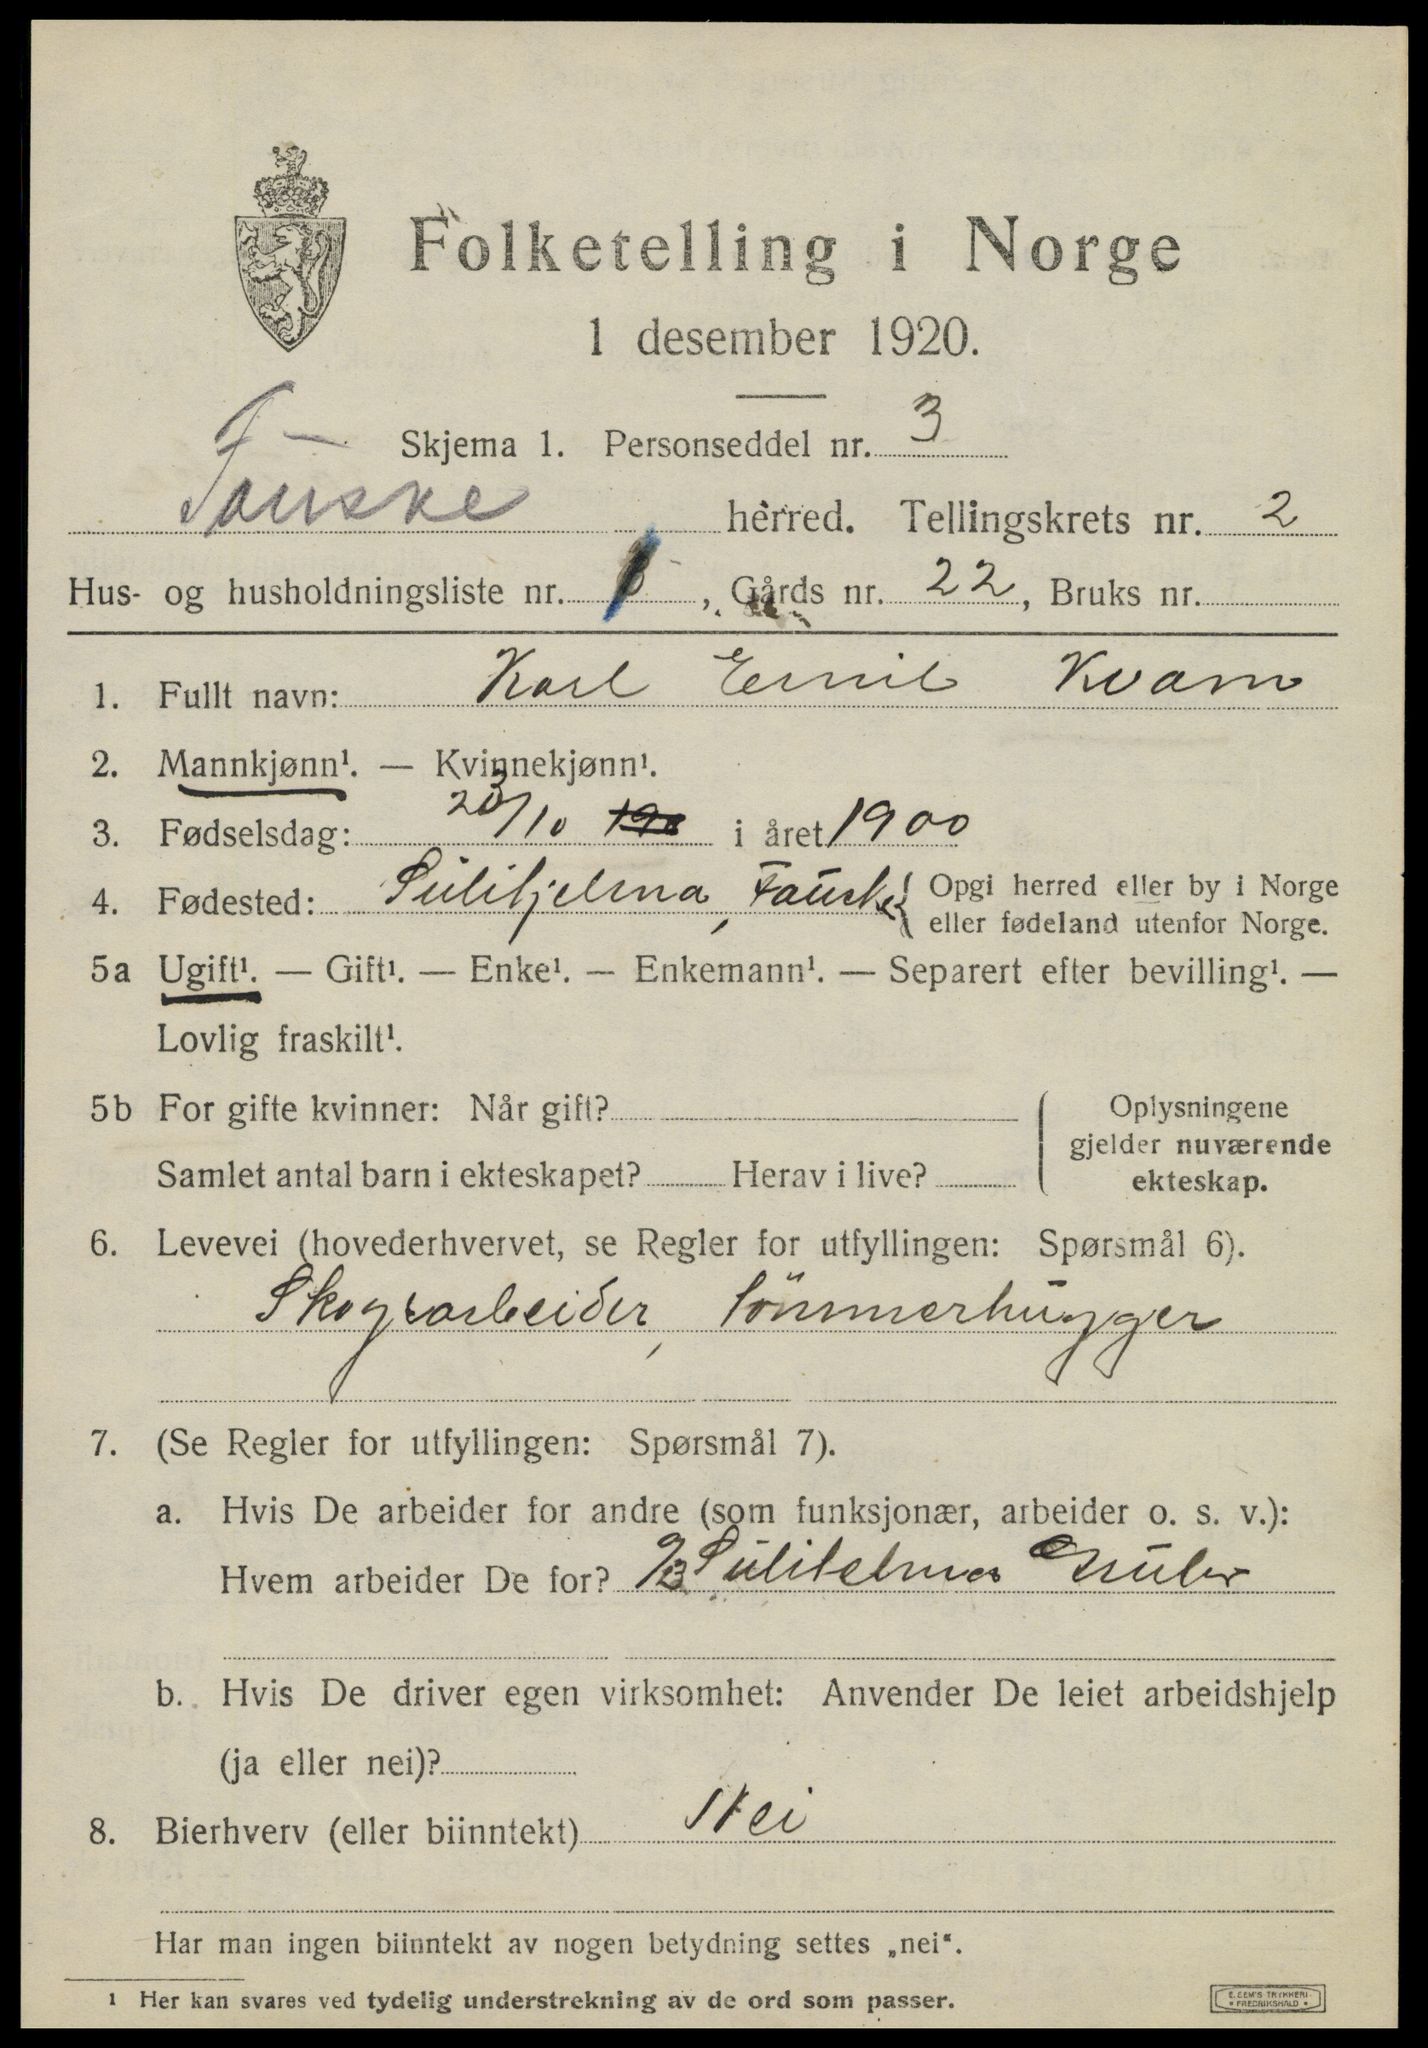 Folketelling i Norge
1 desember 1920.
Skjema 1. Personseddel nr. 3
Fauske herred. Tellingskrets nr. 2
Hus- og husholdningsliste nr. , Gårds nr. 22, Bruks nr.
1. Fullt navn: Karl Emil Kvam
2. Mannkjønn¹. — Kvinnekjønn¹.
3. Fødselsdag: 23/10 i året 1900
4. Fødested: Sulitjelma, Fauske { Opgi herred eller by i Norge
eller fødeland utenfor Norge.
5a Ugift¹. — Gift¹. — Enke¹. — Enkemann¹. — Separert efter bevilling¹. —
Lovlig fraskilt¹.
5b For gifte kvinner: Når gift?
Samlet antal barn i ekteskapet? Herav i live?
Oplysningene
gjelder nuværende
ekteskap.
6. Levevei (hovederhvervet, se Regler for utfyllingen: Spørsmål 6).
Skogsarbeider, tömmerhugger
7. (Se Regler for utfyllingen: Spørsmål 7).
a. Hvis De arbeider for andre (som funksjonær, arbeider o. s. v.):
Hvem arbeider De for? Sulitelma Gruber
b. Hvis De driver egen virksomhet: Anvender De leiet arbeidshjelp
(ja eller nei)?
8. Bierhverv (eller biinntekt) Nei
Har man ingen biinntekt av nogen betydning settes „nei“.
1 Her kan svares ved tydelig understrekning av de ord som passer.
E. SEM'S TRYKKERI
• FREDRIKSHALD •